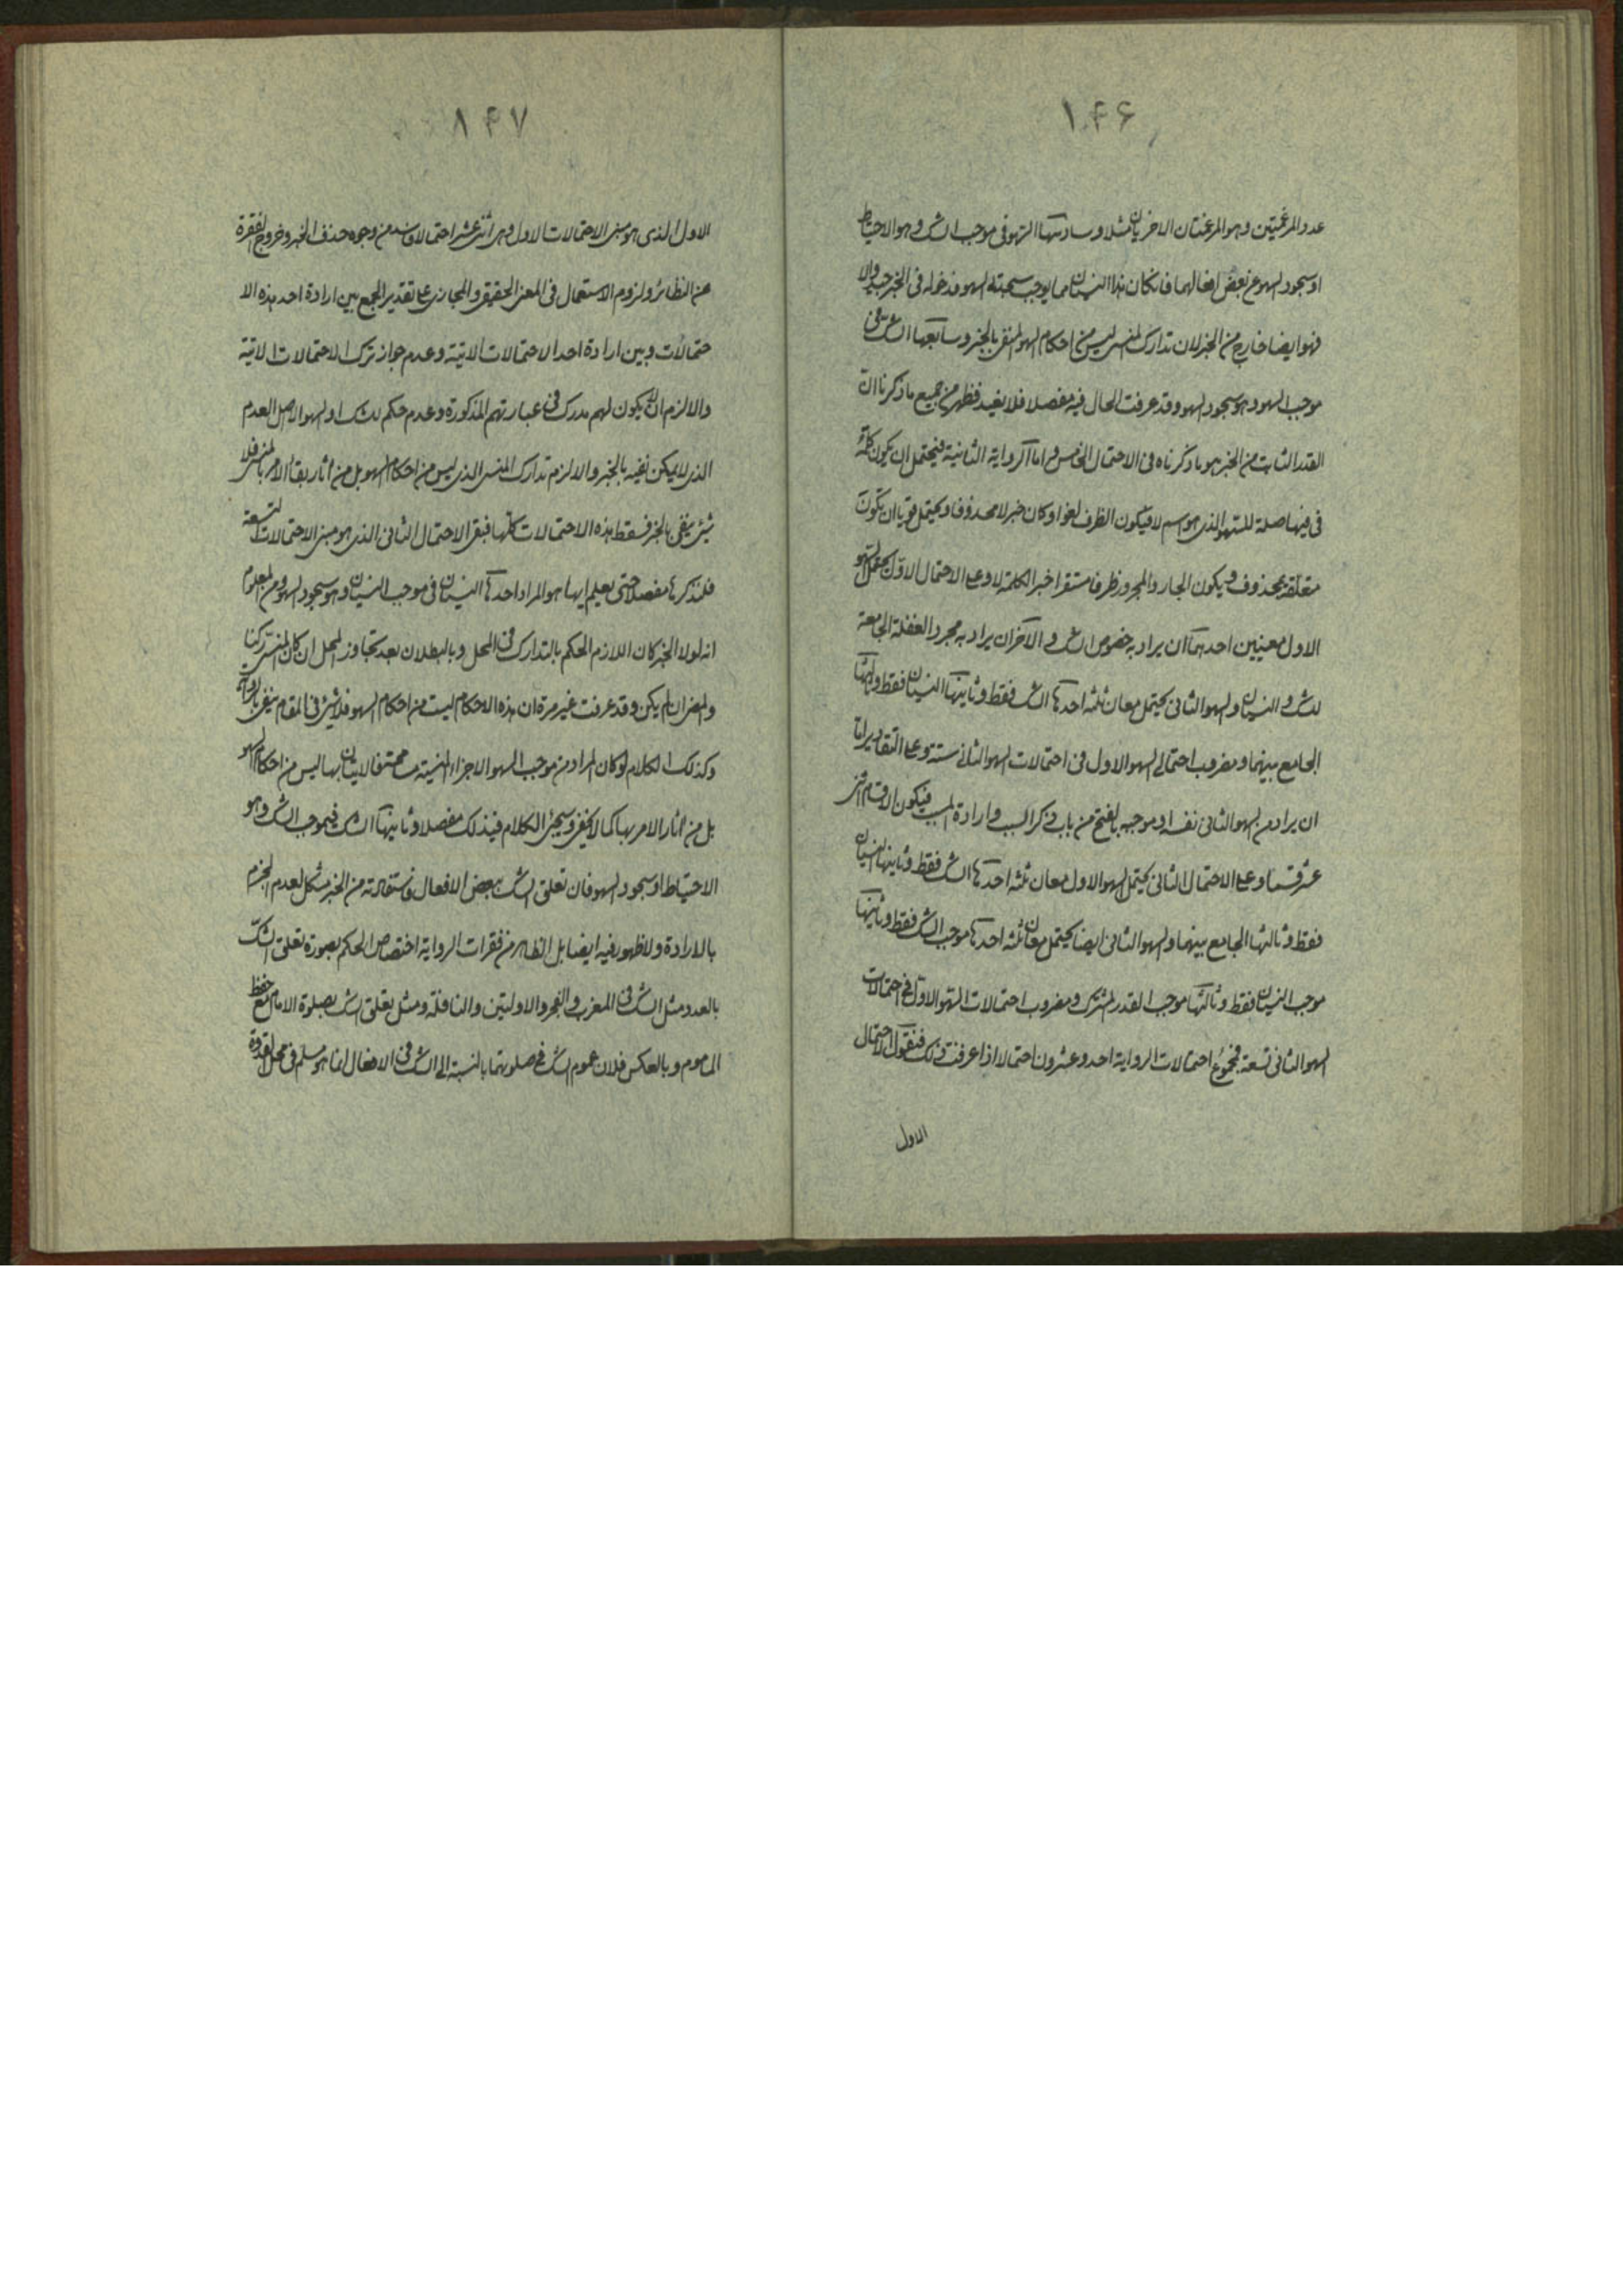 ١٤٦
عدد المرغمتين وهو المرغمتان الاخريان مثلا وسادسها السهو فى موجب الشك وهو الاحتياط
او سجود السهو عن بعض افعالهما فان كان هذا النسيان مما يوجب سجدتى السهو فدخوله فى الخبر جيد والا
فهو ايضا خارج من الخبر لان تدارك المنسى ليس من احكام السهو المنفى بالخبر وسابعها الشك فى
موجب السهو وهو سجود السهو وقد عرفت الحال فيه مفصلا فلا نعيد فظهر من جميع ما ذكرنا ان
القدر الثابت من الخبر هو ما ذكرناه فى الاحتمال الخامس واما الرواية الثانية فيحتمل ان يكون كلمة
فى فيها صلة للسهو الذى هو اسم لا فيكون الظرف لغوا وكان خبر لا محذوفا ويحتمل قويا ان تكون
متعلقة بمحذوف ويكون الجار والمجرور ظرفا مستقرا خبرا لكلمة لا وعلى الاحتمال الاول يحتمل السهو
الاول معنيين احدهما ان يراد به خصوص الشك والآخر ان يراد به مجرد الغفلة الجامعة
للشك والنسيان والسهو الثانى يحتمل معان ثلثة احدها الشك فقط وثانيها النسيان فقط وثالثها
الجامع بينهما ومضروب احتمالى السهو الاول فى احتمالات السهو الثانى ستة وعلى التقادير اما
ان يراد من السهو الثانى نفسه او موجبه بالفتح من باب ذكر السبب وارادة المسبب فيكون الاقسام اثنى
عشر قسما وعلى الاحتمال الثانى يحتمل السهو الاول معان ثلثة احدها الشك فقط وثانيها النسيان
فقط وثالثها الجامع بينهما والسهو الثانى ايضا يحتمل معان ثلثة احدها موجب الشك فقط وثانيها
موجب النسيان فقط وثالثها موجب القدر المشترك ومضروب احتمالات السهو الاول فى احتمالات
السهو الثانى تسعة فمجموع احتمالات الرواية احد وعشرون احتمالا اذا عرفت ذلك فنقول الاحتمال
الاول
١٤٧
الاول الذى هو مبنى الاحتمالات الاول وهى اثنى عشر احتمالا فاسد من وجوه حذف الخبر وخروج الفقرة
عن النظائر ولزوم الاستعمال فى المعنى الحقيقى والمجازى على تقدير الجمع بين ارادة احد هذه الا
حتمالات وبين ارادة احد الاحتمالات الاتية وعدم جواز ترك الاحتمالات الاتية
والا لزم ان لا يكون لهم مدرك فى عباراتهم المذكورة وعدم حكم للشك او السهو الا صل العدم
الذى لا يمكن نفيه بالخبر والا لزم تدارك المنسى الذى ليس من احكام السهو بل من اثار بقاء الامر بالمنسى فلا
شئ ينفى بالخبر فسقط هذه الاحتمالات كلها فبقى الاحتمال الثانى الذى هو مبنى الاحتمالات التسعة
فلنذكرها مفصلا حتى يعلم ايها هو المراد احدها النسيان فى موجب النسيان وهو سجود السهو ومن المعلوم
انه لولا الخبر كان اللازم الحكم بالتدارك فى المحل وبالبطلان بعد تجاوز المحل ان كان المنسى ركنا
والمضى ان لم يكن وقد عرفت غير مرة ان هذه الاحكام ليست من احكام السهو فلا شئ فى المقام ينفى بالرواية
وكذلك الكلام لو كان المراد من موجب السهو الاجزاء المنسية فالاتيان بها ليس من احكام السهو
بل من اثار الامر بها كما لا يخفى وسيجئ الكلام فى ذلك مفصلا وثانيها الشك فى موجب الشك وهو
الاحتياط او سجود السهو فان تعلق الشك ببعض الافعال فاستفادته من الخبر مشكل لعدم الجزم
بالارادة ولا ظهور فيه ايضا بل الظاهر من فقرات الرواية اختصاص الحكم بصورة تعلق الشك
بالعدد مثل الشك فى المغرب والفجر والاولتين والنافلة ومثل تعلق الشك بصلوة الامام مع حفظ
المأموم وبالعكس فلان عموم الشك فى صلوتهما بالنسبة الى الشك فى الافعال انما هو مسلم فى محل القدوة